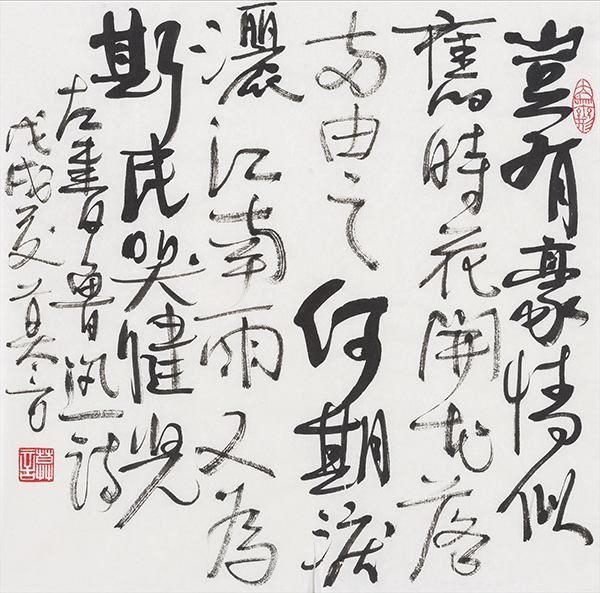 豈有豪情似
舊時花開花落
两由之何期淚
灑江南雨又為
斯民哭健兒
左書魯迅詩
戊戌夏莫言